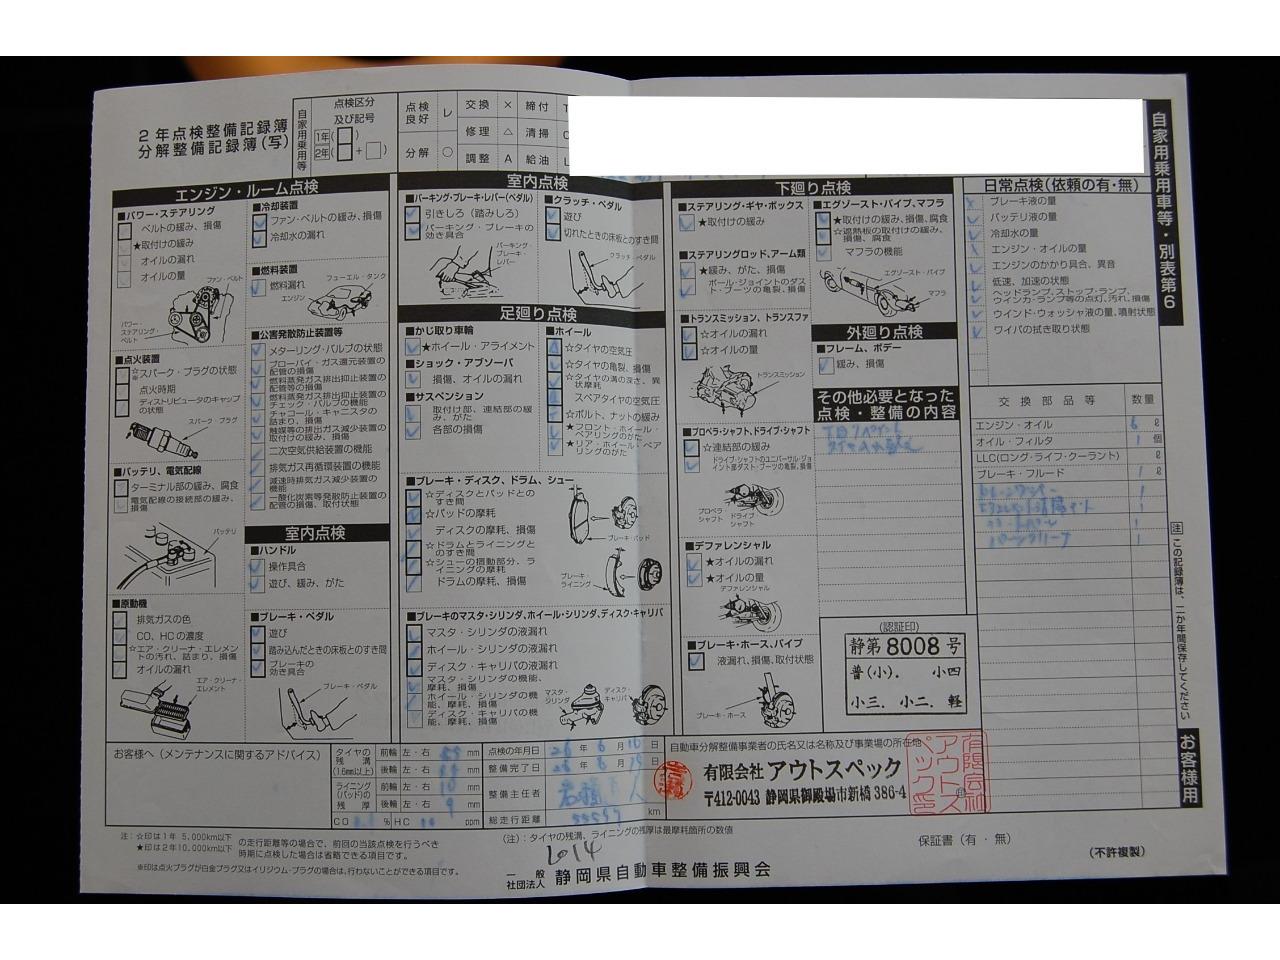 2年点検整備記録簿
分解整備記録簿(写)
自家用乗用等
点検区分
及び記号
1年( )
2年( + )
点検良好 レ 交換 × 締付 T
修理 △ 清掃
分解 ○ 調整 A 給油 L
自家用乗用車等・別表第6
エンジン・ルーム点検
■パワー・ステアリング
ベルトの緩み、損傷
★取付けの緩み
オイルの漏れ
オイルの量
ファン・ベルト
パワー・ステアリング・ベルト
■点火装置
☆スパーク・プラグの状態
※
点火時期
ディストリビュータのキャップの状態
スパーク・プラグ
■バッテリ、電気配線
ターミナル部の緩み、腐食
電気配線の接続部の緩み、損傷
バッテリ
■原動機
排気ガスの色
CO、HCの濃度
☆エア・クリーナ・エレメントの汚れ、詰まり、損傷
オイルの漏れ
エア・クリーナ・エレメント
■冷却装置
ファン・ベルトの緩み、損傷
冷却水の漏れ
■燃料装置
燃料漏れ
フューエル・タンク
エンジン
■公害発散防止装置等
メターリング・バルブの状態
ブローバイ・ガス還元装置の配管の損傷
燃料蒸発ガス排出抑止装置の配管等の損傷
燃料蒸発ガス排出抑止装置のチェック・バルブの機能
チャコール・キャニスタの詰まり、損傷
触媒等の排出ガス減少装置の取付けの緩み、損傷
二次空気供給装置の機能
排気ガス再循環装置の機能
減速時排気ガス減少装置の機能
一酸化炭素等発散防止装置の配管の損傷、取付状態
室内点検
■ハンドル
操作具合
遊び、緩み、がた
■ブレーキ・ペダル
遊び
踏み込んだときの床板とのすき間
ブレーキの効き具合
ブレーキ・ペダル
室内点検
■パーキング・ブレーキ・レバー(ペダル)
引きしろ(踏みしろ)
パーキング・ブレーキの効き具合
パーキング・ブレーキ・レバー
■クラッチ・ペダル
遊び
切れたときの床板とのすき間
クラッチ・ペダル
足廻り点検
■かじ取り車輪
★ホイール・アライメント
■ショック・アブソーバ
損傷、オイルの漏れ
■サスペンション
取付け部、連結部の緩み、がた
各部の損傷
■ホイール
☆タイヤの空気圧
☆タイヤの亀裂、損傷
☆タイヤの溝の深さ、異状摩耗
スペアタイヤの空気圧
☆ボルト、ナットの緩み
★フロント・ホイール・ベアリングのがた
★リア・ホイール・ベアリングのがた
■ブレーキ・ディスク、ドラム、シュー
☆ディスクとパッドとのすき間
☆パッドの摩耗
ディスクの摩耗、損傷
☆ドラムとライニングとのすき間
☆シューの摺動部分、ライニングの摩耗
ドラムの摩耗、損傷
ブレーキ・パッド
ブレーキ・ライニング
■ブレーキのマスタ・シリンダ、ホイール・シリンダ、ディスク・キャリパ
マスタ・シリンダの液漏れ
ホイール・シリンダの液漏れ
ディスク・キャリパの液漏れ
マスタ・シリンダの機能、摩耗、損傷
ホイール・シリンダの機能、摩耗、損傷
ディスク・キャリパの機能、摩耗、損傷
マスタ・シリンダ
ディスク・キャリパ
下廻り点検
■ステアリング・ギヤ・ボックス
★取付けの緩み
■ステアリングロッド、アーム類
★緩み、がた、損傷
ボール・ジョイントのダスト・ブーツの亀裂、損傷
■トランスミッション、トランスファ
☆オイルの漏れ
☆オイルの量
トランスミッション
■プロペラ・シャフト、ドライブ・シャフト
☆連結部の緩み
ドライブ・シャフトのユニバーサル・ジョイント部ダスト・ブーツの亀裂、損傷
プロペラ・シャフト
ドライブ・シャフト
■デファレンシャル
★オイルの漏れ
★オイルの量
デファレンシャル
■ブレーキ・ホース、パイプ
液漏れ、損傷、取付状態
ブレーキ・ホース
■エグゾースト・パイプ、マフラ
★取付けの緩み、損傷、腐食
☆遮熱板の取付けの緩み、損傷、腐食
マフラの機能
エグゾースト・パイプ
マフラ
外廻り点検
■フレーム、ボデー
緩み、損傷
その他必要となった点検・整備の内容
(認証印)
静第8008号
普(小). 小四
小三. 小二. 軽
日常点検(依頼の有・無)
ブレーキ液の量
バッテリ液の量
冷却水の量
エンジン・オイルの量
エンジンのかかり具合、異音
低速、加速の状態
ヘッドランプ、ストップ・ランプ、ウインカ・ランプ等の点灯、汚れ、損傷
ウインド・ウォッシャ液の量、噴射状態
ワイパの拭き取り状態
交換部品等 数量
エンジン・オイル 6 ℓ
オイル・フィルタ 1 個
LLC(ロング・ライフ・クーラント) ℓ
ブレーキ・フルード 1 ℓ
1
1
1
1
注 この記録簿は、二か年間保存してください
お客様用
お客様へ(メンテナンスに関するアドバイス)
タイヤの残溝(1.6mm以上) 前輪 左・右 mm
後輪 左・右 mm
ライニング(パッド)の残厚 前輪 左・右 10 mm
後輪 左・右 9 mm
CO % HC ppm
点検の年月日 26年6月 日
整備完了日 26年6月 日
整備主任者
総走行距離 km
自動車分解整備事業者の氏名又は名称及び事業場の所在地
有限会社 アウトスペック
〒412-0043 静岡県御殿場市新橋 386-4
有限会社アウトスペック印
注:☆印は1年 5,000km以下
★印は2年10,000km以下 の走行距離等の場合で、前回の当該点検を行うべき時期に点検した場合は省略できる項目です。
※印は点火プラグが白金プラグ又はイリジウム・プラグの場合は、行わないことができる項目です。
(注):タイヤの残溝、ライニングの残厚は最摩耗箇所の数値
2014
保証書(有・無)
一般社団法人 静岡県自動車整備振興会
(不許複製)